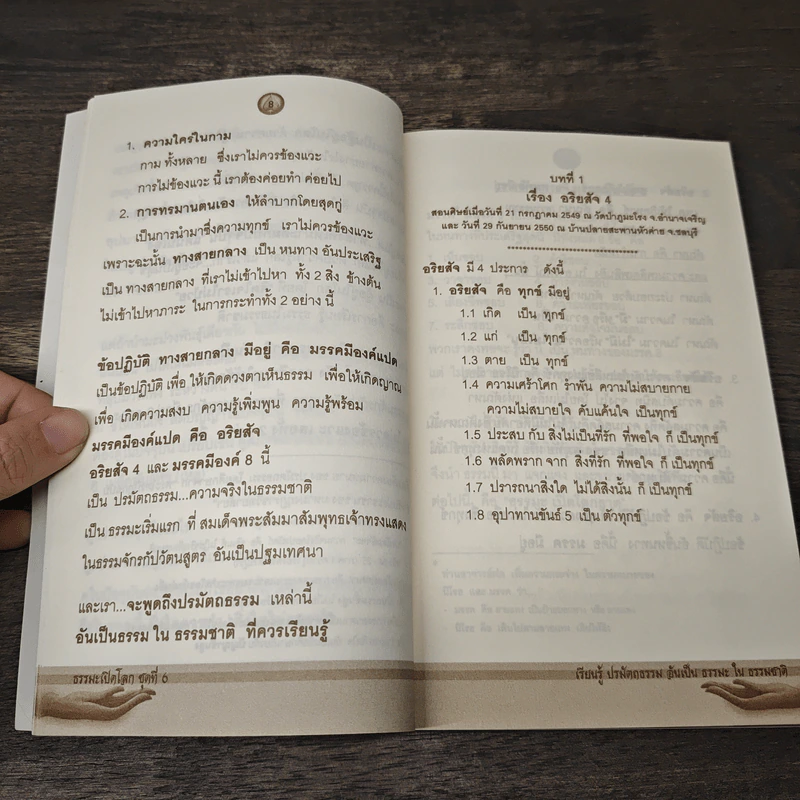 8
1. ความใคร่ในกาม
กาม ทั้งหลาย ซึ่งเราไม่ควรข้องแวะ
การไม่ข้องแวะ นี้ เราต้องค่อยทำ ค่อยไป
2. การทรมานตนเอง ให้ลำบากโดยสุดกู่
เป็นการนำมาซึ่งความทุกข์ เราไม่ควรข้องแวะ
เพราะฉะนั้น ทางสายกลาง เป็น หนทาง อันประเสริฐ
เป็น ทางสายกลาง ที่เราไม่เข้าไปหา ทั้ง 2 สิ่ง ข้างต้น
ไม่เข้าไปหาภาระ ในการกระทำทั้ง 2 อย่าง นี้
ข้อปฏิบัติ ทางสายกลาง มีอยู่ คือ มรรคมีองค์แปด
เป็นข้อปฏิบัติ เพื่อ ให้เกิดดวงตาเห็นธรรม เพื่อให้เกิดญาณ
เพื่อ เกิดความสงบ ความรู้เพิ่มพูน ความรู้พร้อม
มรรคมีองค์แปด คือ อริยสัจ
อริยสัจ 4 และ มรรคมีองค์ 8 นี้
เป็น ปรมัตถธรรม...ความจริงในธรรมชาติ
เป็น ธรรมะเริ่มแรก ที่ สมเด็จพระสัมมาสัมพุทธเจ้าทรงแสดง
ในธรรมจักรกัปวัตนสูตร อันเป็นปฐมเทศนา
และเรา...จะพูดถึงปรมัตถธรรม เหล่านี้
อันเป็นธรรม ใน ธรรมชาติ ที่ควรเรียนรู้
ธรรมะเปิดโลก ชุดที่ 6
บทที่ 1
เรื่อง อริยสัจ 4
สอนศิษย์เมื่อวันที่ 21 กรกฎาคม 2549 ณ วัดป่าภูมะโรง จ.อำนาจเจริญ
และ วันที่ 29 กันยายน 2550 ณ บ้านปลายสะพานหัวค่าย จ.ชลบุรี
อริยสัจ มี 4 ประการ ดังนี้
1. อริยสัจ คือ ทุกข์ มีอยู่
1.1 เกิด เป็น ทุกข์
1.2 แก่ เป็น ทุกข์
1.3 ตาย เป็น ทุกข์
1.4 ความเศร้าโศก รำพัน ความไม่สบายกาย
ความไม่สบายใจ คับแค้นใจ เป็นทุกข์
1.5 ประสบ กับ สิ่งไม่เป็นที่รัก ที่พอใจ ก็ เป็นทุกข์
1.6 พลัดพราก จาก สิ่งที่รัก ที่พอใจ ก็ เป็นทุกข์
1.7 ปรารถนาสิ่งใด ไม่ได้สิ่งนั้น ก็ เป็นทุกข์
1.8 อุปาทานขันธ์ 5 เป็น ตัวทุกข์
เรียนรู้ ปรมัตถธรรม อันเป็น ธรรมะ ใน ธรรมชาติ